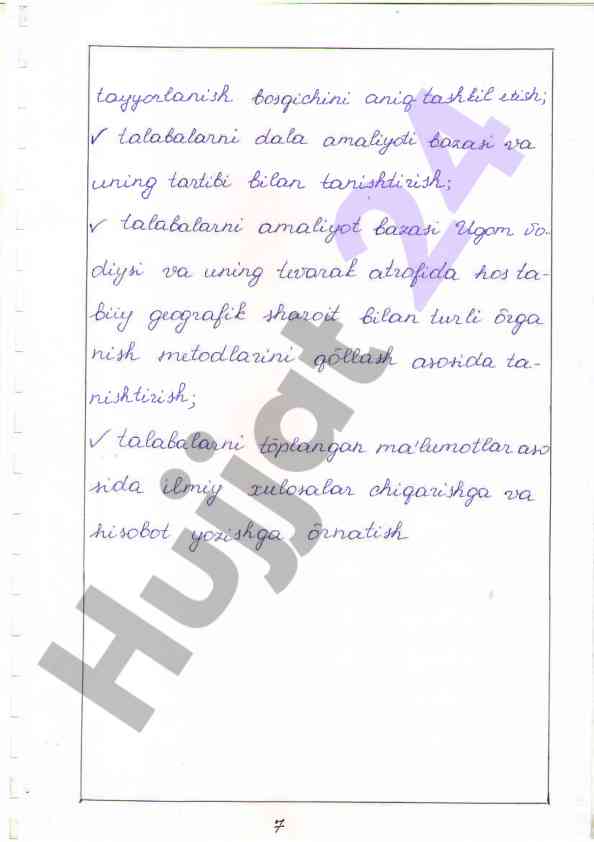 tayyorlanish bosqichini aniq tashkil etish;
✓ talabalarni dala amaliyoti bazasi va
uning tartibi bilan tanishtirish;
✓ talabalarni amaliyot bazasi Ugom vo-
diysi va uning tevarak atrofida hos ta-
biiy geografik sharoit bilan turli õrga
nish metodlarini qõllash asosida ta-
nishtirish;
✓ talabalarni tõplangan ma'lumotlar aso
sida ilmiy xulosalar chiqarishga va
hisobot yozishga õrnatish
7
Hujjat 24